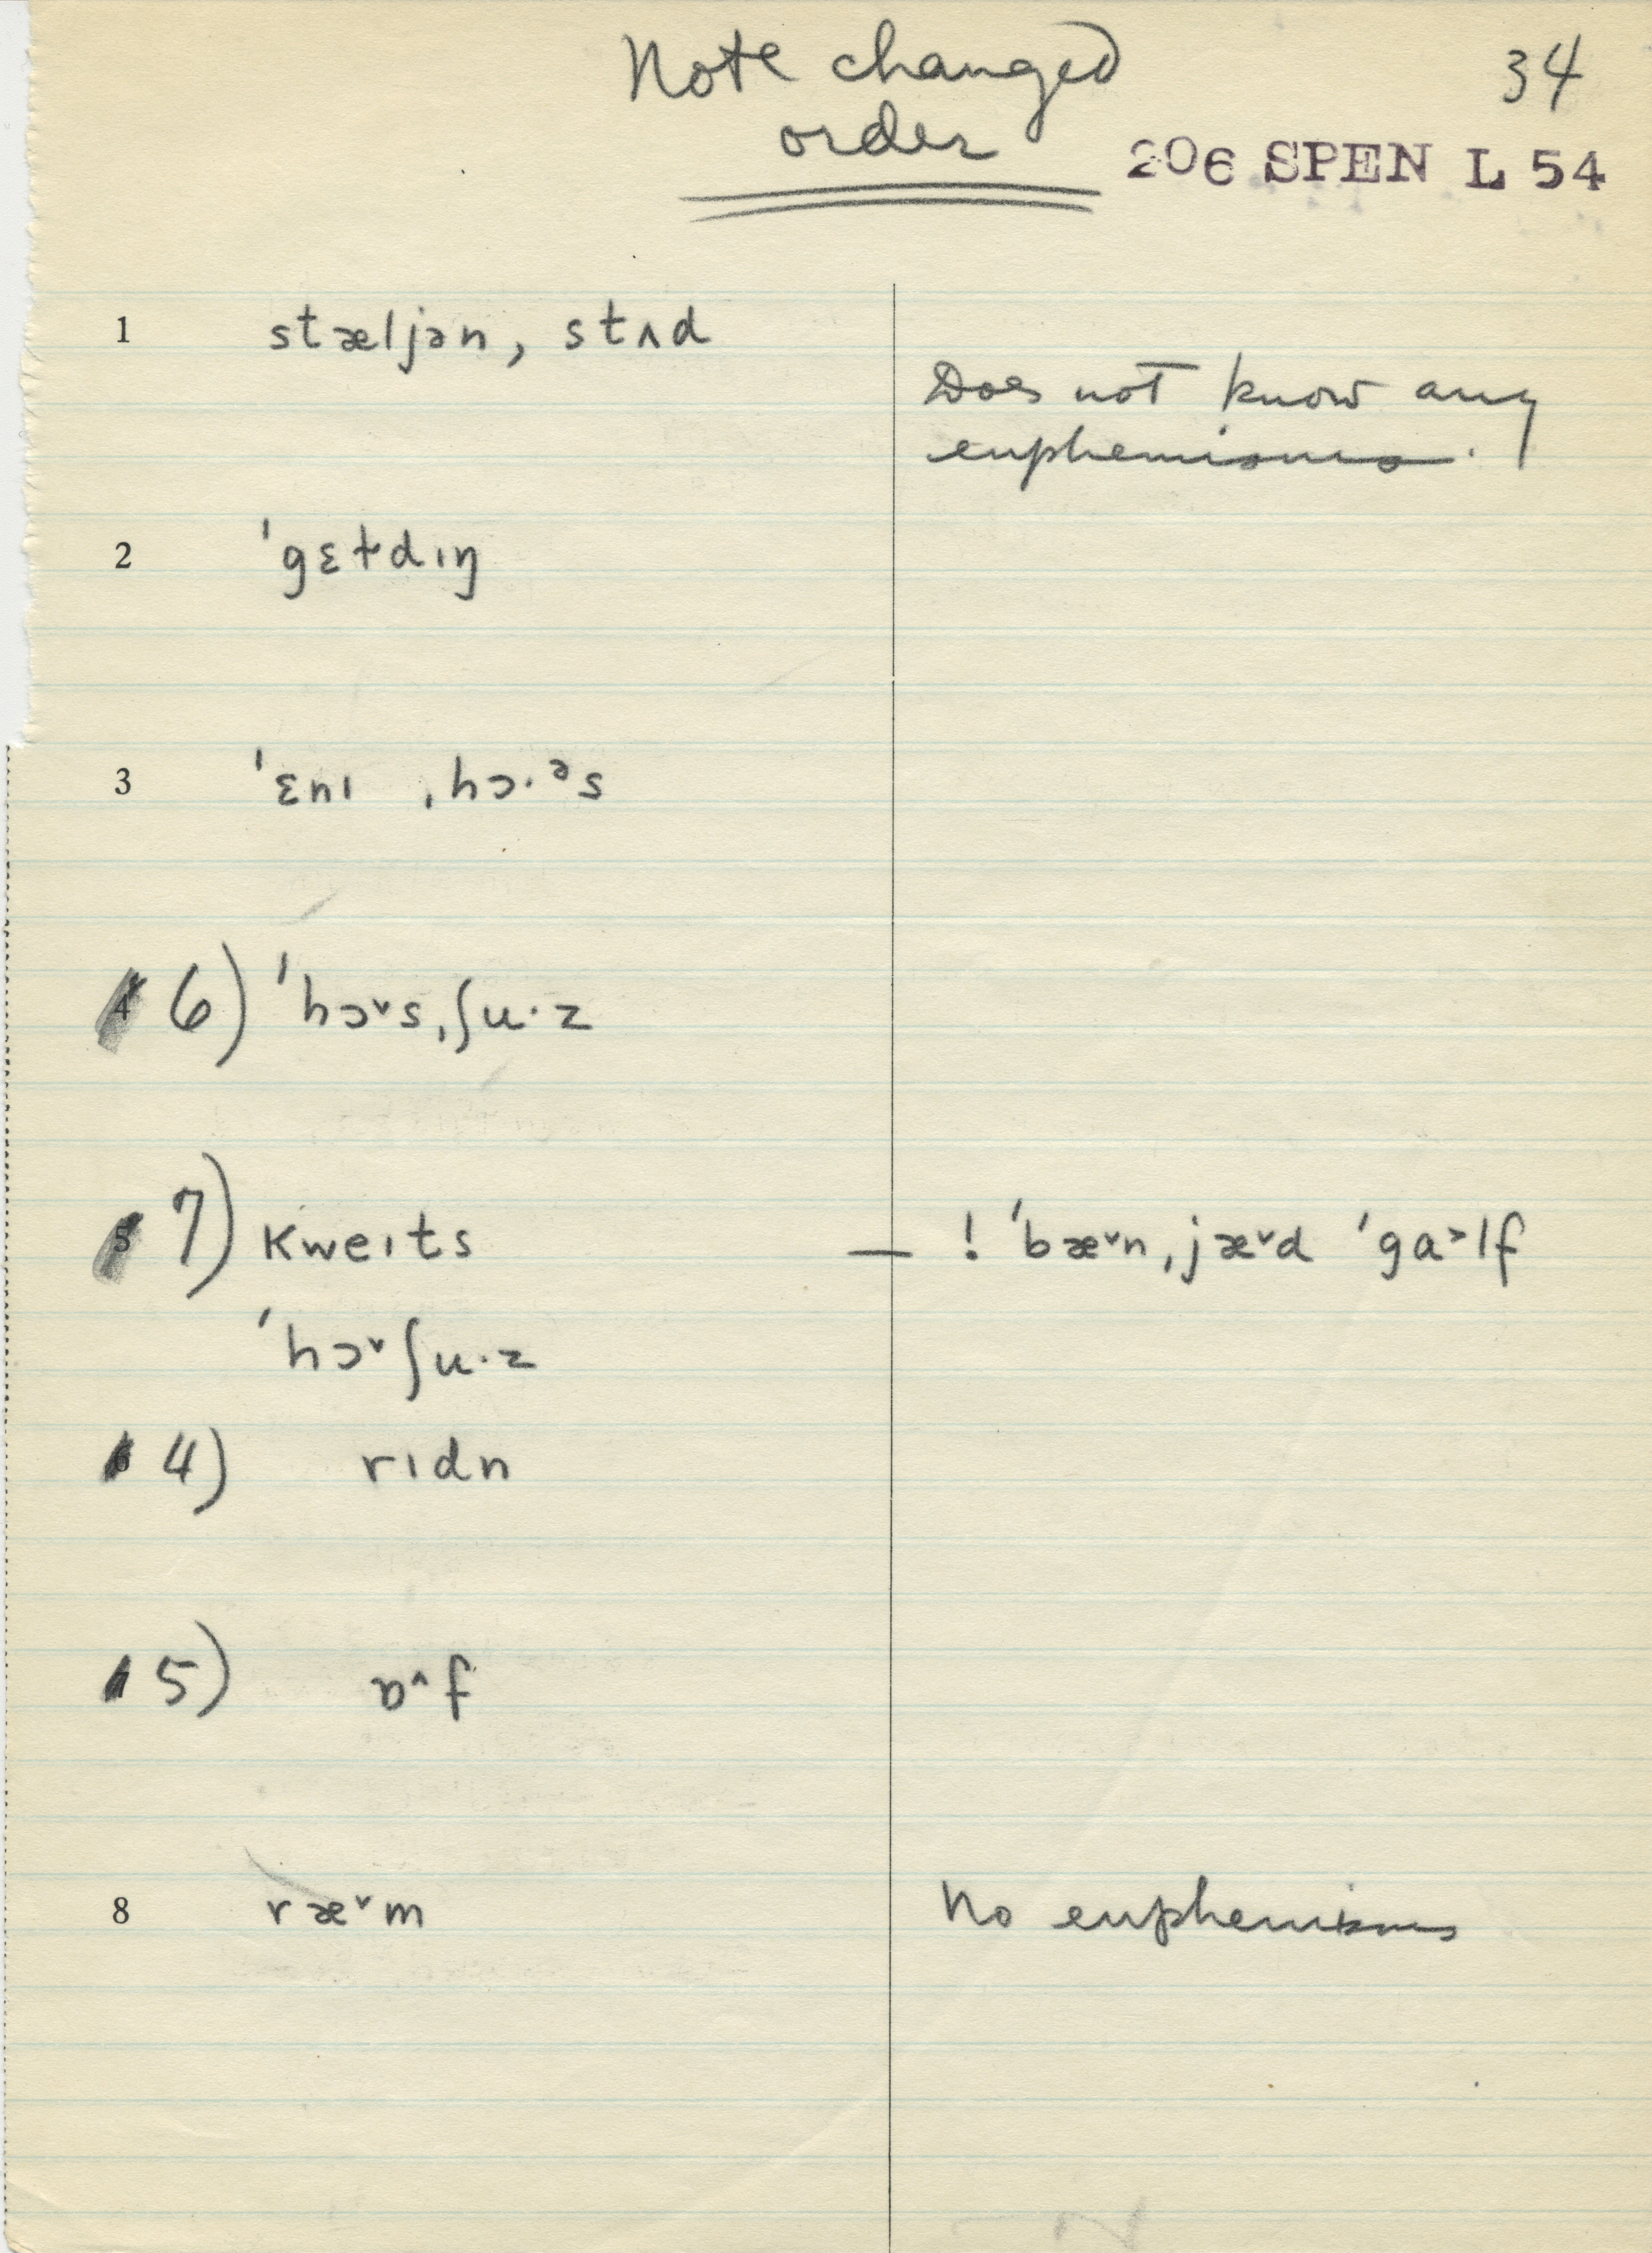 Note changed 34
order
206 SPEN L 54
1 stæljən, stʌd
Does not know any
euphemisms.
2 ˈgɛtdɪŋ
3 ˈɛnɪ ˌhɔ·ᵊs
6) ˈhɔ˅sˌʃu·z
7) kweɪts — ! ˈbæ˅nˌjæ˅d ˈga˃lf
ˈhɔ˅ʃu·z
4) rɪdn
5) ɒ˄f
8 ræ˅m No euphemisms